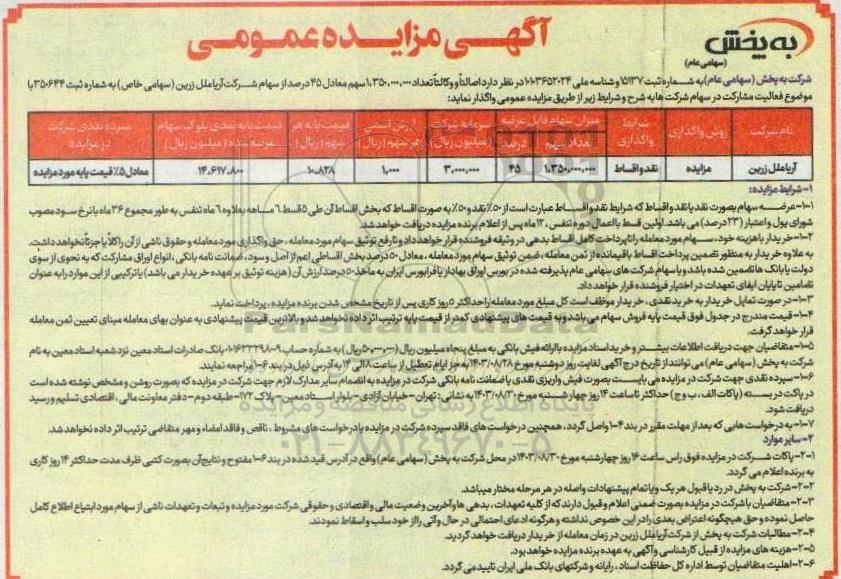 آگهی مزایده عمومی
به پخش
(سهامی عام)
شرکت به پخش (سهامی عام) به شماره ثبت ۱۵۱۳۷ و شناسه ملی ۱۰۱۰۳۶۵۲۰۲۴ در نظر دارد اصالتاً و وکالتاً تعداد ۱،۳۵۰،۰۰۰،۰۰۰ سهم معادل ۴۵ درصد از سهام شرکت آریا ملل زرین (سهامی خاص) به شماره ثبت ۳۵۰۶۴۴ با
موضوع فعالیت مشارکت در سهام شرکت ها به شرح و شرایط زیر از طریق مزایده عمومی واگذار نماید:
نام شرکت روش واگذاری شرایط واگذاری میزان سهام قابل عرضه تعداد سهم درصد سرمایه شرکت (میلیون ریال) ارزش اسمی هر سهم (ریال) قیمت پایه هر سهم (ریال) قیمت پایه نقدی بلوک سهام عرضه شده (میلیون ریال) سپرده نقدی شرکت در مزایده
آریا ملل زرین مزایده نقد و اقساط ۱،۳۵۰،۰۰۰،۰۰۰ ۴۵ ۳،۰۰۰،۰۰۰ ۱،۰۰۰ ۱۰،۸۲۸ ۱۴،۶۱۷،۸۰۰ معادل ۵٪ قیمت پایه مورد مزایده
۱- شرایط مزایده:
۱-۱- عرضه سهام بصورت نقد یا نقد و اقساط که شرایط نقد و اقساط عبارت است از ۵۰٪ نقد و ۵۰٪ به صورت اقساط که بخش اقساط آن طی ۵ قسط ۶ ماهه بعلاوه ۶ ماه تنفس به طور مجموع ۳۶ ماه با نرخ سود مصوب
شورای پول و اعتبار (۲۳ درصد) می باشد. اولین قسط با اعمال دوره تنفس، ۱۲ ماه پس از اعلام برنده مزایده دریافت خواهد شد.
۱-۲- خریدار با هزینه خود، سهام مورد معامله را تا پرداخت کامل اقساط بدهی در وثیقه فروشنده قرار خواهد داد و تا رفع توثیق سهام مورد معامله، حق واگذاری مورد معامله و حقوق ناشی از آن را کلاً یا جزئاً نخواهد داشت.
به علاوه خریدار به منظور تضمین پرداخت اقساط باقیمانده از ثمن معامله، ضمن توثیق سهام مورد معامله، معادل ۵۰ درصد بخش اقساطی اعم از اصل و سود، ضمانت نامه بانکی، انواع اوراق مشارکت که به نحوی از سوی
دولت یا بانک ها تضمین شده باشد و یا سهام شرکت های سهامی عام پذیرفته شده در بورس اوراق بهادار یا فرابورس ایران به ماخذ ۵۰ درصد ارزش آن (هزینه توثیق بر عهده خریدار می باشد) یا ترکیبی از این موارد را به عنوان
تامین تا پایان ایفای تعهدات در اختیار فروشنده قرار خواهد داد.
۱-۳- در صورت تمایل خریدار به خرید نقدی، خریدار موظف است کل مبلغ مورد معامله را حداکثر ۵ روز کاری پس از تاریخ مشخص شدن برنده مزایده، پرداخت نماید.
۱-۴- قیمت مندرج در جدول فوق قیمت پایه فروش سهام می باشد و به قیمت های پیشنهادی کمتر از قیمت پایه ترتیب اثر داده نخواهد شد و بالاترین قیمت پیشنهادی به عنوان بهای معامله مبنای تعیین ثمن معامله
قرار خواهد گرفت.
۱-۵- متقاضیان جهت دریافت اطلاعات بیشتر و خرید اسناد مزایده با ارائه فیش بانکی به مبلغ پنجاه میلیون ریال (۵۰،۰۰۰،۰۰۰ ریال) به شماره حساب بانک صادرات استاد معین نزد شعبه استاد معین به نام
شرکت به پخش (سهامی عام) می توانند از تاریخ درج آگهی لغایت روز دوشنبه مورخ ۱۴۰۳/۰۸/۲۸ به جز ایام تعطیل از ساعت ۸ الی ۱۴ به آدرس ذیل در بند ۶-۱ مراجعه نمایند.
۱-۶- سپرده نقدی جهت شرکت در مزایده می بایست بصورت فیش واریزی نقدی یا ضمانت نامه بانکی شرکت در مزایده به انضمام سایر مدارک لازم جهت شرکت در مزایده که بصورت روشن و مشخص نوشته شده است
در پاکت در بسته (پاکات الف، ب و ج) حداکثر تا ساعت ۱۴ روز چهارشنبه مورخ ۱۴۰۳/۰۸/۳۰ به نشانی: تهران- خیابان آزادی- بلوار استاد معین- پلاک ۱۷۲- طبقه دوم- دفتر معاونت مالی، اقتصادی تسلیم و رسید
دریافت شود.
۱-۷- به درخواست هایی که بعد از مهلت مقرر در بند ۴-۱ واصل گردد، همچنین درخواست های فاقد سپرده شرکت در مزایده یا درخواست های مشروط، ناقص و فاقد امضاء و مهر متقاضی ترتیب اثر داده نخواهد شد.
۲- سایر موارد
۲-۱- پاکات شرکت در مزایده فوق راس ساعت ۱۶ روز چهارشنبه مورخ ۱۴۰۳/۰۸/۳۰ در محل شرکت به پخش (سهامی عام) واقع در آدرس قید شده در بند ۶-۱ مفتوح و نتایج آن بصورت کتبی ظرف مدت حداکثر ۱۴ روز کاری
به برنده اعلام می گردد.
۲-۲- شرکت به پخش در رد یا قبول هر یک و یا تمام پیشنهادات واصله در هر مرحله مختار میباشد.
۲-۳- متقاضیان با شرکت در مزایده بصورت ضمنی اعلام و قبول دارند که از کلیه تعهدات، بدهی ها و آخرین وضعیت مالی و اقتصادی و حقوقی شرکت مورد مزایده و تبعات و تعهدات ناشی از سهام مورد ابتیاع اطلاع کامل
حاصل نموده و حق هیچگونه اعتراض بعدی را در این خصوص نداشته و هرگونه ادعای احتمالی در حال و آتی را از خود سلب و اسقاط نمودند.
۲-۴- مطالبات شرکت به پخش از شرکت آریا ملل زرین در زمان معامله از خریدار دریافت خواهد گردید.
۲-۵- هزینه های مزایده از قبیل کارشناسی و آگهی به عهده برنده مزایده خواهد بود.
۲-۶- اهلیت متقاضیان توسط اداره کل حفاظت اسناد، رایانه و شرکتهای بانک ملی ایران تایید می گردد.
پایگاه اطلاع رسانی مناقصه و مزایده
۰۲۱-۸۸۳۴۹۶۷۰-۵